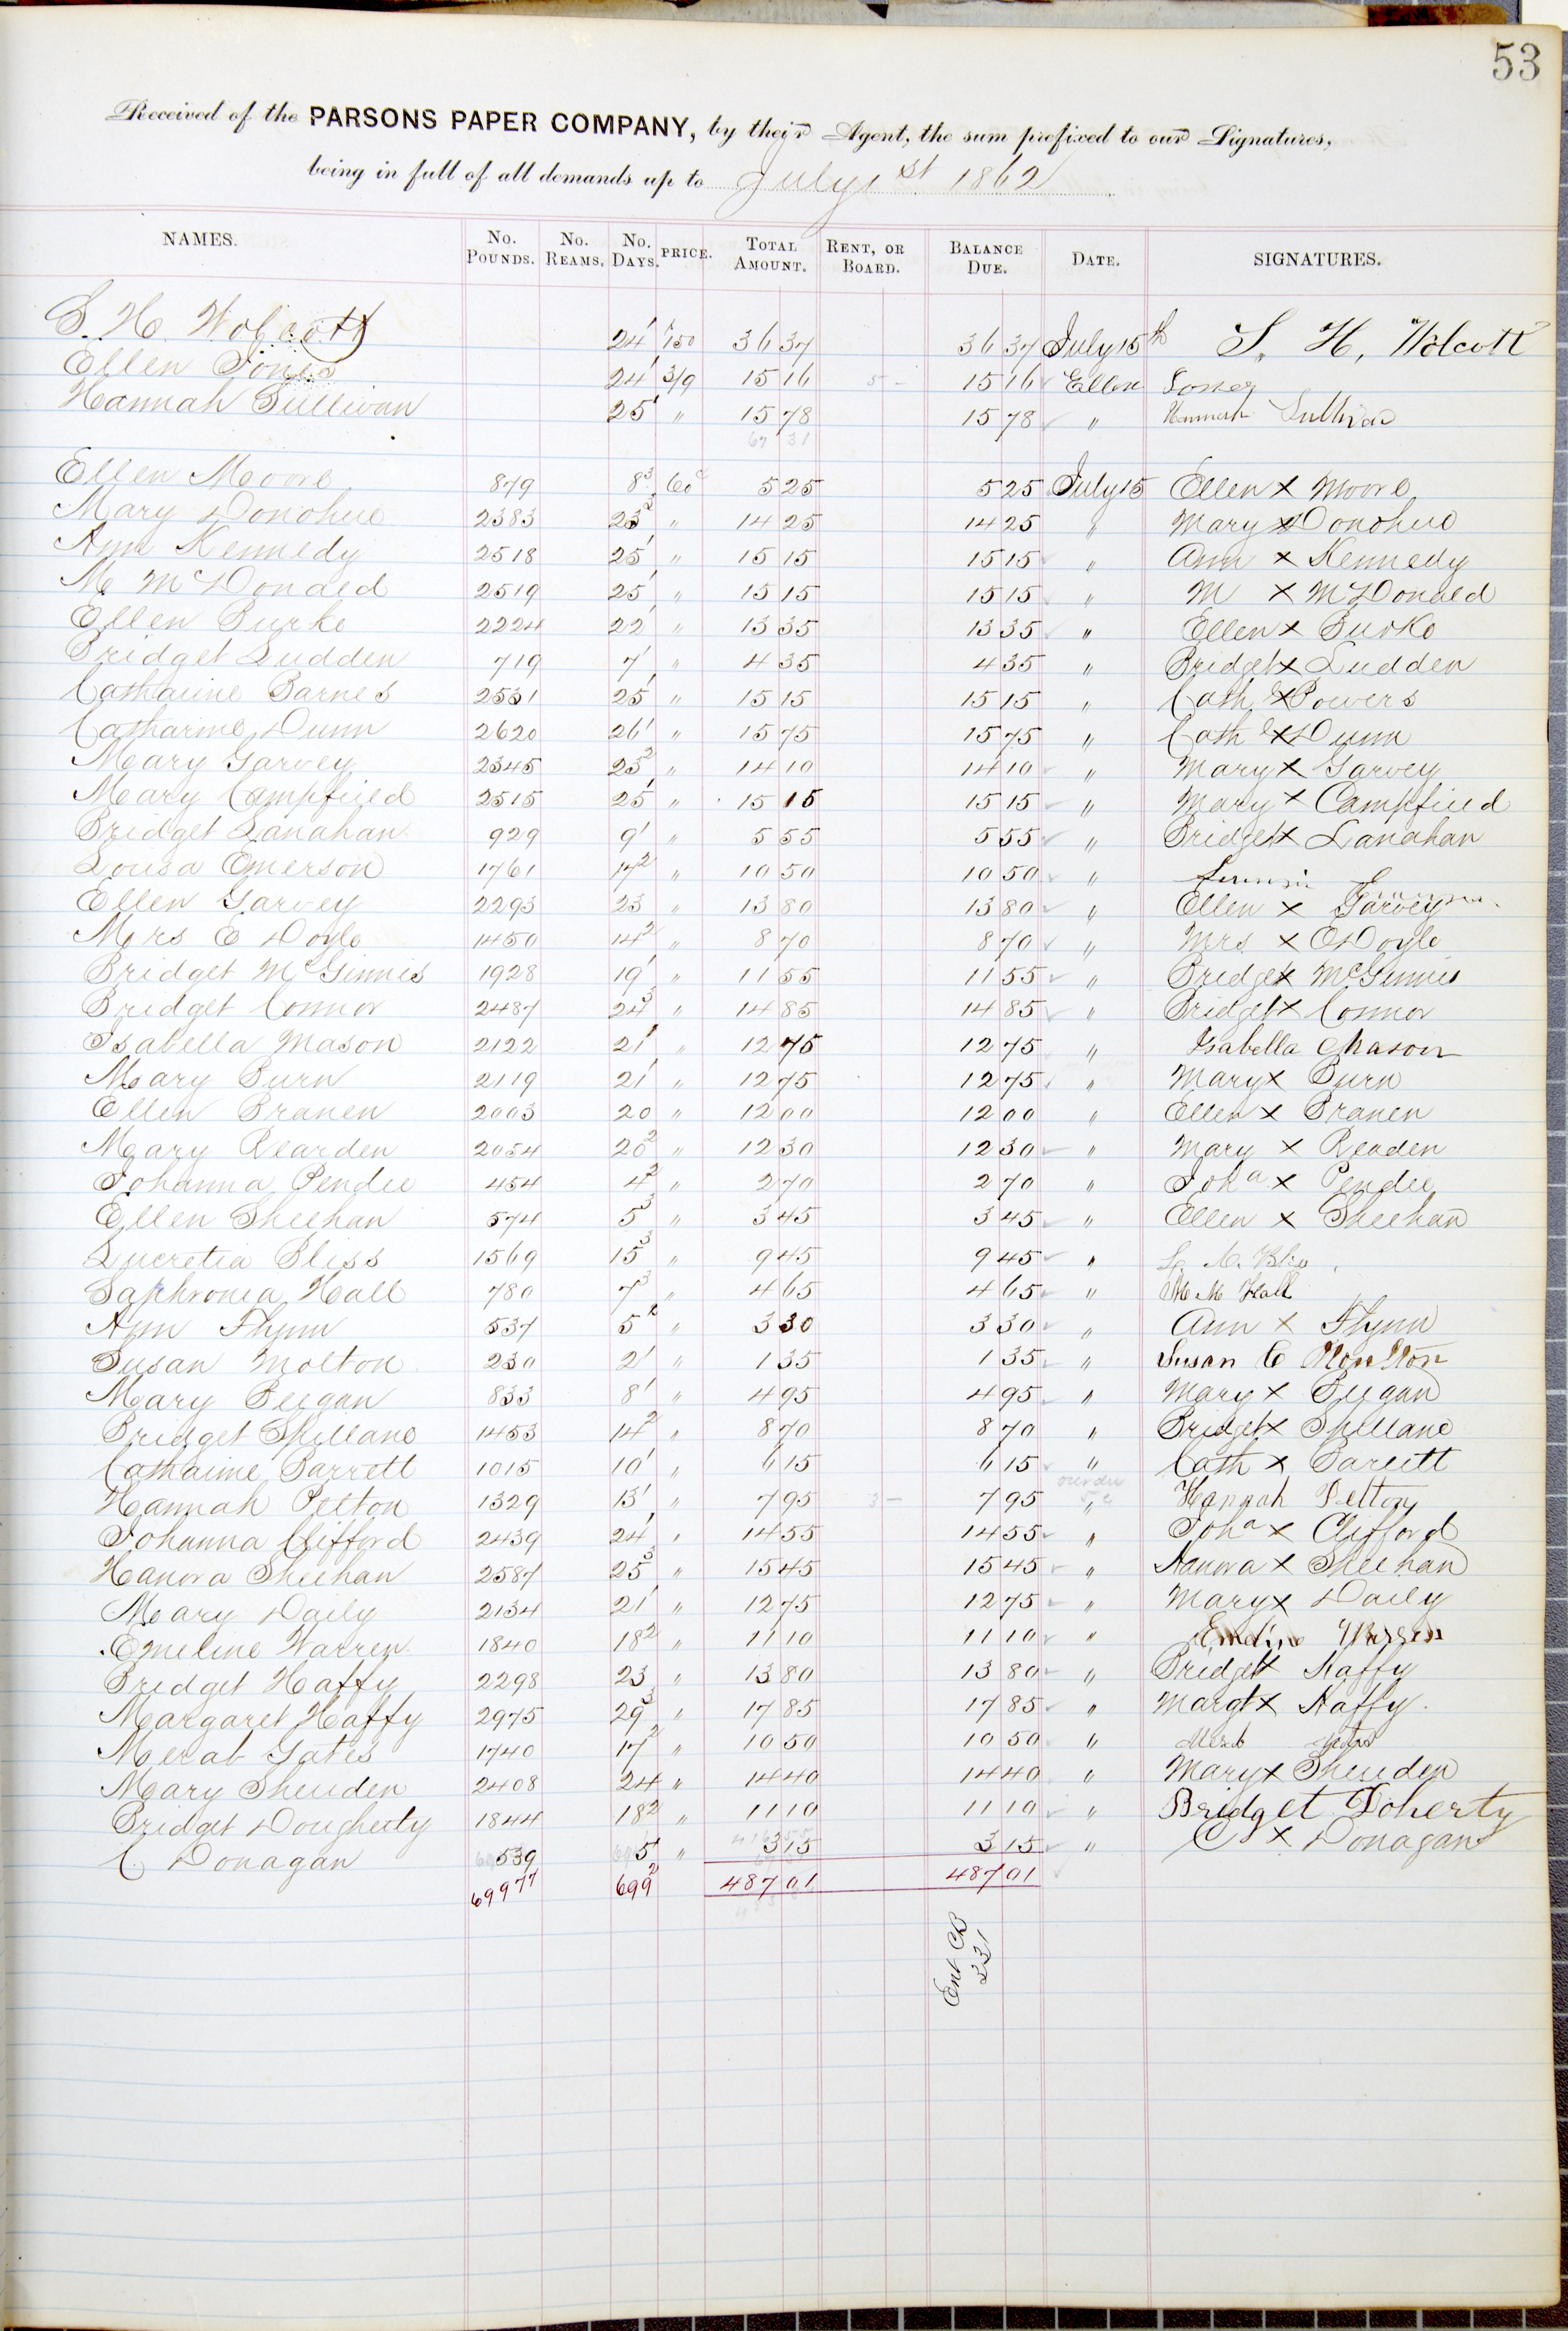 53
Received of the PARSONS PAPER COMPANY, by their Agent, the sum prefixed to our Signatures,
being in full of all demands up to July 1st 1862
NAMES. No. POUNDS. No. REAMS. No. DAYS. PRICE. TOTAL AMOUNT. RENT, OR BOARD. BALANCE DUE. DATE. SIGNATURES.
S. H. Wolcott 24 1 150 36 37 36 37 July 15th S. H. Wolcott
Ellen Jones 24 1 3/9 15 16 5 - 15 16 Ellen
Hannah Sullivan 25 1 " 15 78 15 78 " Hannah Sullivan
67 31
Ellen Moore 879 8 3 60c 5 25 5 25 July 15 Ellen X Moore
Mary Donohue 2383 23 3 " 14 25 14 25 " Mary X Donohue
Ann Kennedy 2518 25 1 " 15 15 15 15 " Ann X Kennedy
M McDonald 2519 25 1 " 15 15 15 15 " M X McDonald
Ellen Burke 2224 22 1 " 13 35 13 35 " Ellen X Burke
Bridget Ludden 719 7 1 " 4 35 4 35 " Bridget X Ludden
Catharine Barnes 2531 25 1 " 15 15 15 15 " Cath X Powers
Catharine Dunn 2620 26 1 " 15 75 15 75 " Cath X Dunn
Mary Garvey 2345 23 2 " 14 10 14 10 " Mary X Garvey
Mary Campfield 2515 25 1 " 15 15 15 15 " Mary X Campfield
Bridget Lanahan 929 9 1 " 5 55 5 55 " Bridget X Lanahan
Louisa Emerson 1761 17 2 " 10 50 10 50 "
Ellen Garvey 2293 23 " 13 80 13 80 " Ellen X Garvey
Mrs E Doyle 1450 14 2 " 8 70 8 70 " Mrs X E Doyle
Bridget McGinnis 1928 19 1 " 11 55 11 55 " Bridget X McGinnis
Bridget Connor 2487 24 3 " 14 85 14 85 " Bridget X Connor
Isabella Mason 2122 21 1 " 12 75 12 75 " Isabella Mason
Mary Burn 2119 21 1 " 12 75 12 75 " Mary X Burn
Ellen Branen 2003 20 " 12 00 12 00 " Ellen X Branen
Mary Rearden 2054 20 2 " 12 30 12 30 " Mary X Readen
Johanna Pendee 454 4 2 " 2 70 2 70 " Joha X Pendee
Ellen Sheehan 574 5 3 " 3 45 3 45 " Ellen X Sheehan
Lucretia Bliss 1569 15 3 " 9 45 9 45 "
Saphronia Hall 780 7 3 " 4 65 4 65 " Hall
Ann Flynn 537 5 2 " 3 30 3 30 " Ann X Flynn
Susan Molton 230 2 1 " 1 35 1 35 " Susan C Moulton
Mary Beegan 833 8 1 " 4 95 4 95 " Mary X Beegan
Bridget Spillane 1453 14 2 " 8 70 8 70 " Bridget X Spillane
Catharine Barrett 1015 10 1 " 6 15 6 15 " Cath X Barrett
Hannah Pelton 1329 13 1 " 7 95 3 - 7 95 " Hannah Pelton
Johanna Clifford 2439 24 1 " 14 55 14 55 " Joha X Clifford
Hanora Sheehan 2587 25 3 " 15 45 15 45 " Hanora X Sheehan
Mary Daily 2134 21 1 " 12 75 12 75 " Mary X Daily
Emeline Warren 1840 18 2 " 11 10 11 10 " Emeline Warren
Bridget Haffy 2298 23 " 13 80 13 80 " Bridget X Haffy
Margaret Haffy 2975 29 3 " 17 85 17 85 " Margt X Haffy
Merab Gates 1740 17 2 " 10 50 10 50 " Merab Gates
Mary Sheriden 2408 24 " 14 40 14 40 " Mary X Sheriden
Bridget Dougherty 1844 18 2 " 11 10 11 10 " Bridget Doherty
C. Donagan 539 5 1 " 3 15 3 15 " C X Donagan
69977 699 2 487 01 487 01
Ent CB
331